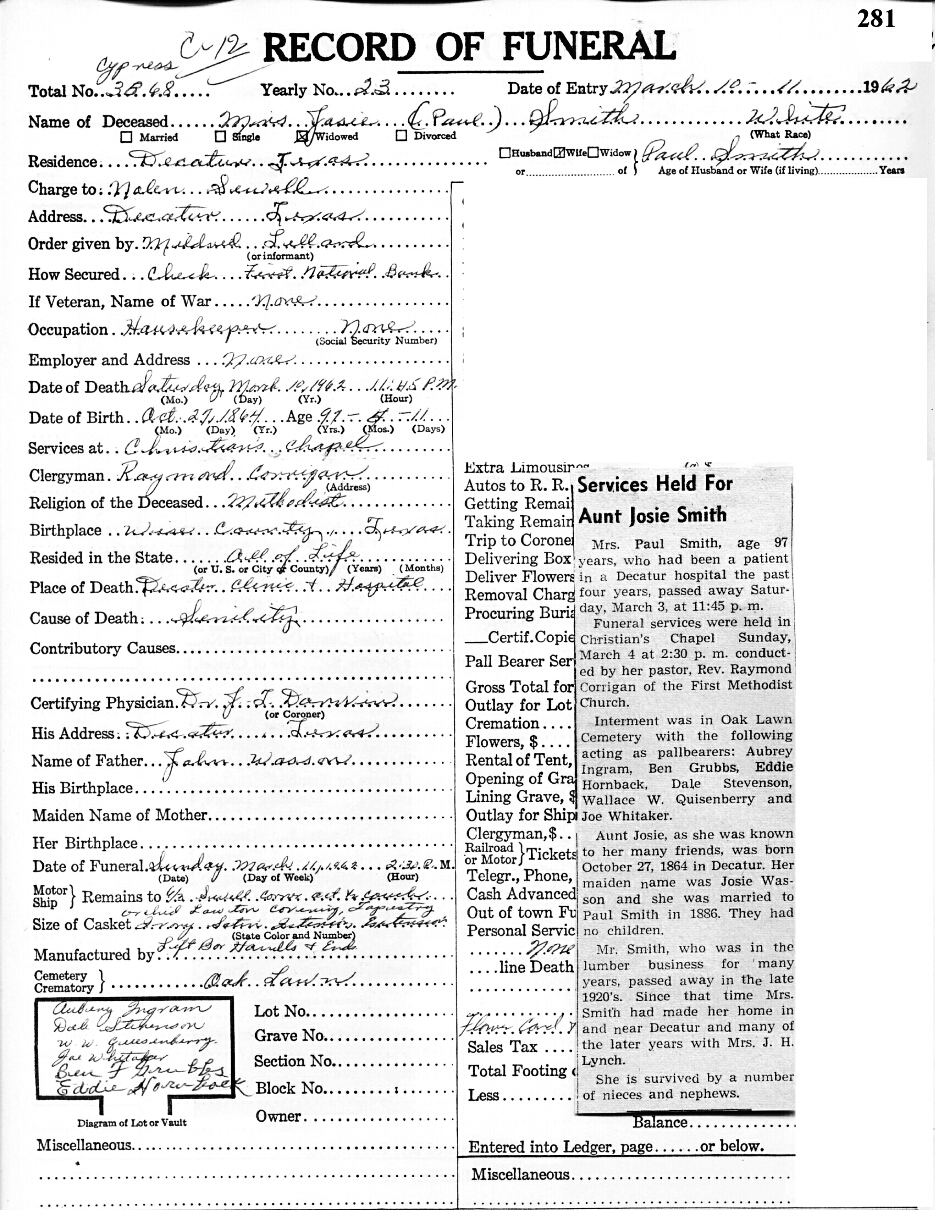 281
C-12
cypress
RECORD OF FUNERAL
Total No. 3868 Yearly No. 23 Date of Entry March 10 - 11 1962
Name of Deceased Mrs Josie (Paul) Smith White
Married Single Widowed Divorced (What Race)
Residence Decatur Texas Husband Wife Widow Paul Smith
or of Age of Husband or Wife (if living) Years
Charge to: Nolen Sewell
Address Decatur Texas
Order given by Mildred
(or informant)
How Secured Check First National Bank
If Veteran, Name of War None
Occupation Housekeeper None
(Social Security Number)
Employer and Address None
Date of Death Saturday, March 10, 1962 11:45 P.M.
(Mo.) (Day) (Yr.) (Hour)
Date of Birth Oct. 27, 1864 Age 97 - 4 - 11
(Mo.) (Day) (Yr.) (Yrs.) (Mos.) (Days)
Services at Christian's Chapel
Clergyman Raymond Corrigan
(Address)
Religion of the Deceased Methodist
Birthplace Wise County, Texas
Resided in the State All of Life
(or U. S. or City or County) (Years) (Months)
Place of Death Decatur Clinic & Hospital
Cause of Death: Senility
Contributory Causes
Certifying Physician Dr. J. T.
(or Coroner)
His Address: Decatur Texas
Name of Father John Wasson
His Birthplace
Maiden Name of Mother
Her Birthplace
Date of Funeral Sunday, March 11, 1962 2:30 P.M.
(Date) (Day of Week) (Hour)
Motor
Ship Remains to
orchid Lawton covering, Tapestry
Size of Casket Ivory Satin Interior
(State Color and Number)
Manufactured by Lift Bar Handles & Ends
Cemetery
Crematory Oak Lawn
Aubrey Ingram
Dale Stevenson
W. W. Quisenberry
Joe Whitaker
Ben F Grubbs
Eddie Hornback
Diagram of Lot or Vault
Lot No.
Grave No.
Section No.
Block No.
Owner
Miscellaneous
Extra Limousines
Autos to R. R.
Getting Remai
Taking Remain
Trip to Coroner
Delivering Box
Deliver Flowers
Removal Charg
Procuring Buria
Certif. Copie
Pall Bearer Ser
Gross Total for
Outlay for Lot
Cremation
Flowers, $
Rental of Tent,
Opening of Gra
Lining Grave, $
Outlay for Ship
Clergyman, $
Railroad
or Motor Tickets
Telegr., Phone,
Cash Advanced
Out of town Fu
Personal Servic
None
line Death
Flower Card
Sales Tax
Total Footing
Less
Balance
Entered into Ledger, page or below.
Miscellaneous
Services Held For
Aunt Josie Smith
Mrs. Paul Smith, age 97
years, who had been a patient
in a Decatur hospital the past
four years, passed away Satur-
day, March 3, at 11:45 p. m.
Funeral services were held in
Christian's Chapel Sunday,
March 4 at 2:30 p. m. conduct-
ed by her pastor, Rev. Raymond
Corrigan of the First Methodist
Church.
Interment was in Oak Lawn
Cemetery with the following
acting as pallbearers: Aubrey
Ingram, Ben Grubbs, Eddie
Hornback, Dale Stevenson,
Wallace W. Quisenberry and
Joe Whitaker.
Aunt Josie, as she was known
to her many friends, was born
October 27, 1864 in Decatur. Her
maiden name was Josie Was-
son and she was married to
Paul Smith in 1886. They had
no children.
Mr. Smith, who was in the
lumber business for many
years, passed away in the late
1920's. Since that time Mrs.
Smith had made her home in
and near Decatur and many of
the later years with Mrs. J. H.
Lynch.
She is survived by a number
of nieces and nephews.